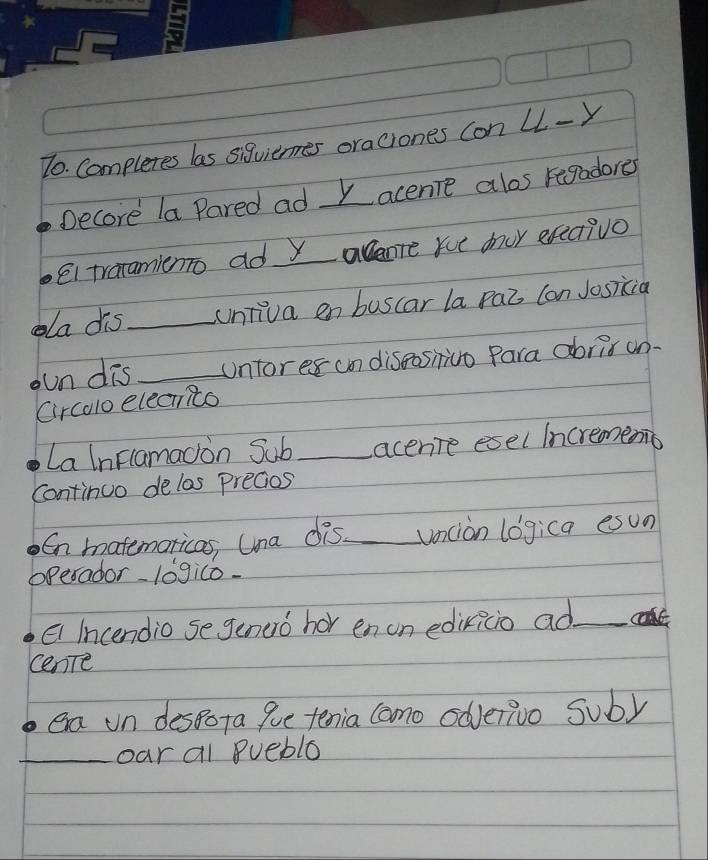 LTIPL
To. Completes las siguiemes oraciones con LL-Y
• Decoré la Pared ad Y acente alos regadores
• El tratamiento ad Y acente fue muy efectivo
• la dis____untiva en buscar la paz con Josticia
• un dis____untor es un dispositivo Para abrir un-
Circulo electrico
• La Inflamación Sub____acente es el Incremento
Continuo de los Precios
• En matematicas, Una dis____unción lógica es un
operador-lógico-
• El Incendio se generó hoy en un edificio ad____
cente
• era un despota que tenia como adjetivo Suby
____oar al Pueblo